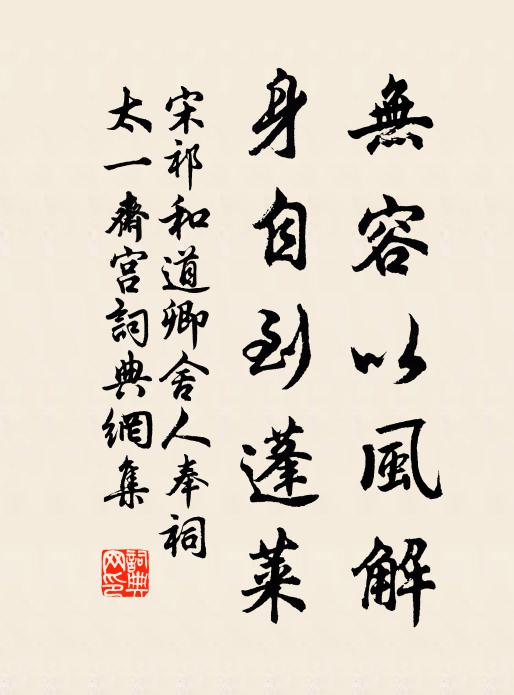 無容以風解
身自到蓬萊
宋祁和道卿舍人奉祠
太一齋宮詞典網集
詞典网印